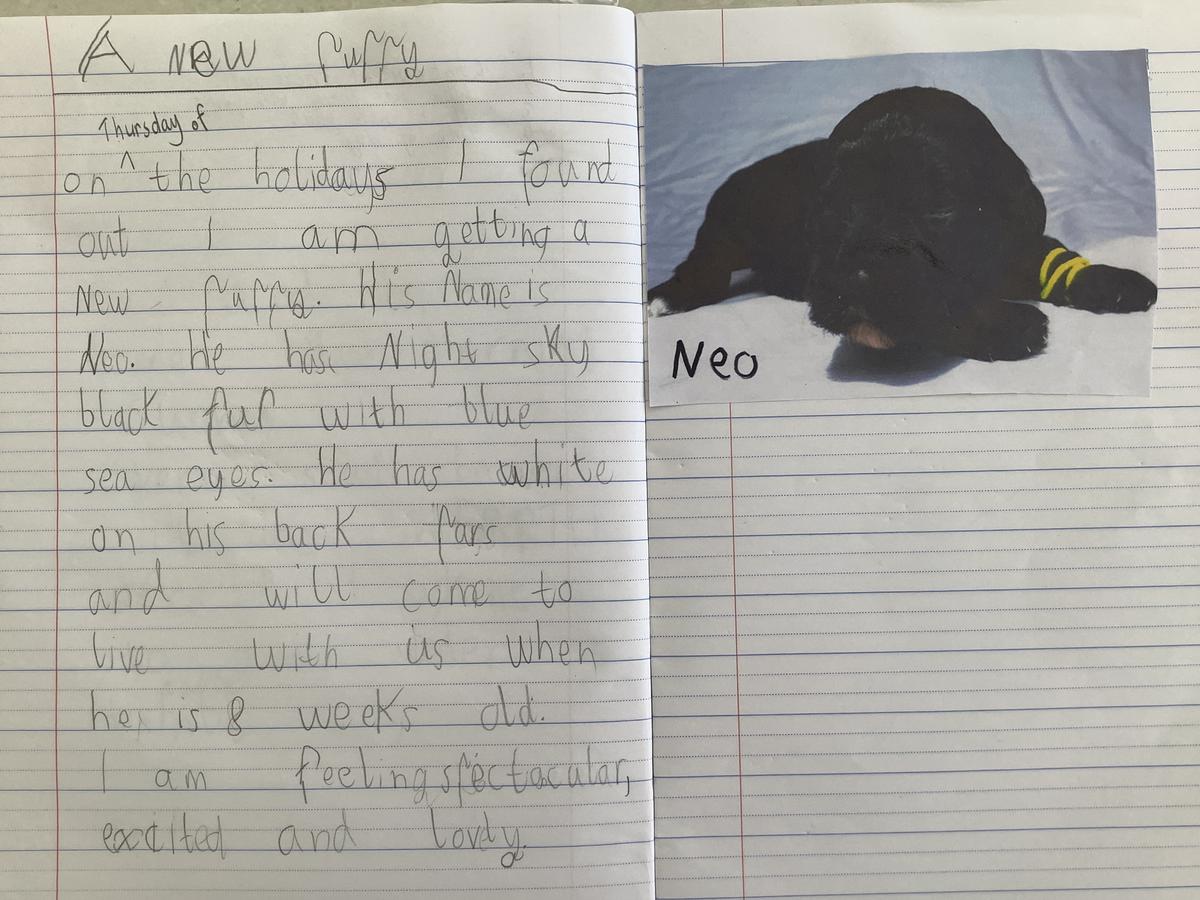 A new puppy
Thursday of
on ^ the holidays I found
out I am getting a
New puppy. His Name is
Neo. He has Night sky
black fur with blue
sea eyes. He has white
on his back pars
and will come to
live with us when
he is 8 weeks old.
I am feeling spectacular,
excited and lovely.
Neo